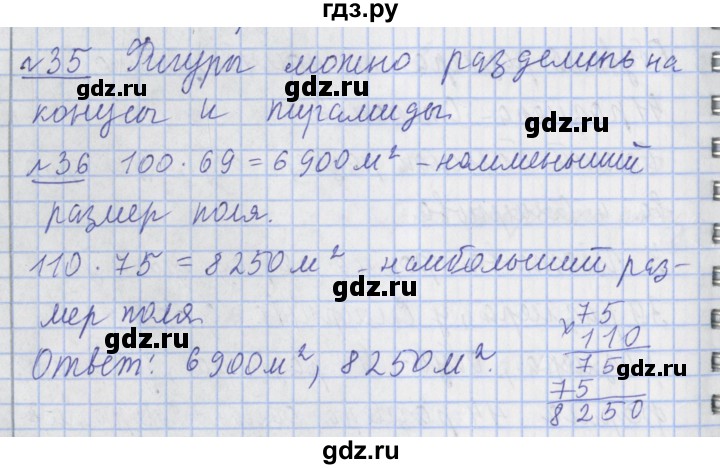 гдз.ру
№35 Фигуры можно разделить на
конусы и пирамиды.
№36 100·69=6900м² - наименьший
размер поля.
110·75=8250м² - наибольший раз-
мер поля.
Ответ: 6900м², 8250м².
×75
110
75
75
8250
gdz.ru
gdz.ru
gdz.ru
gdz.ru
gdz.ru
gdz.ru
gdz.ru
gdz.ru
gdz.ru